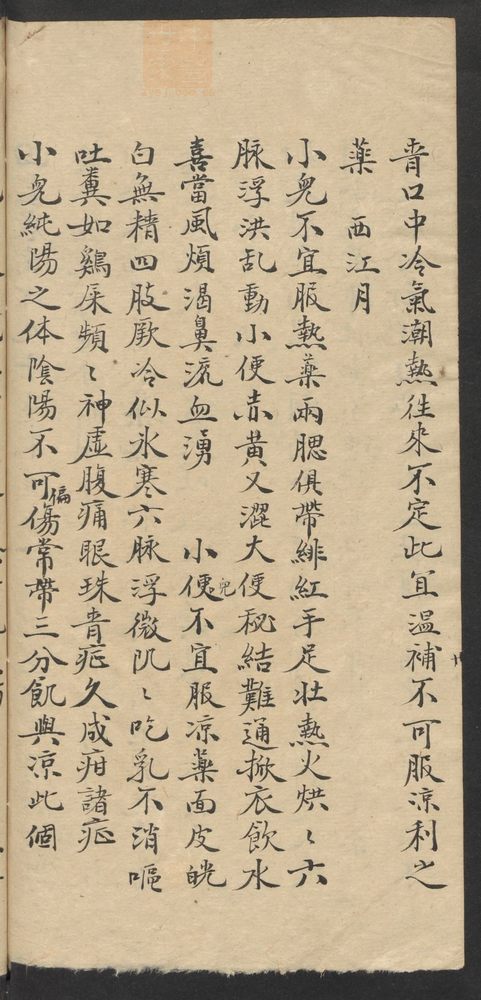 青口中冷氣潮熱往來不定此宜温補不可服凉利之
藥　西江月
小兒不宜服熱藥兩腮俱帶緋紅手足壮熱火烘〻六
脉浮洪乱動小便赤黄又澀大便秘結難通掀衣飲水
喜當風煩渴鼻流血湧　小兒便不宜服凉藥面皮㿠
白無糟四肢厥冷似氷寒六脉浮微肌〻吃乳不消嘔
吐糞如鷄屎頻〻神虚腹痛眼珠青疟久成疳諸症
小兒純陽之体陰陽不可偏傷常帶三分飢與凉此個